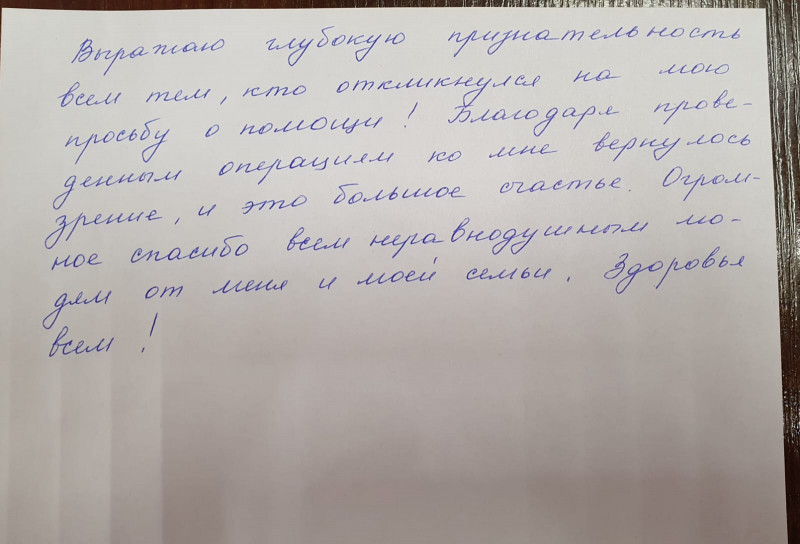 Выражаю глубокую признательность
всем тем, кто откликнулся на мою
просьбу о помощи! Благодаря прове-
денным операциям ко мне вернулось
зрение, и это большое счастье. Огром-
ное спасибо всем неравнодушным лю-
дям от меня и моей семьи. Здоровья
всем!